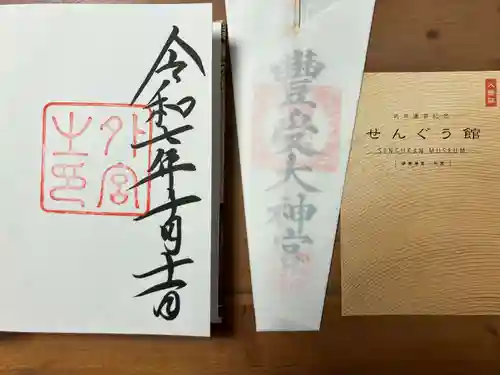 令和七年十月十一日
外宮之印
豐受大神宮
入館証
式年遷宮記念
せんぐう館
SENGUKAN MUSEUM